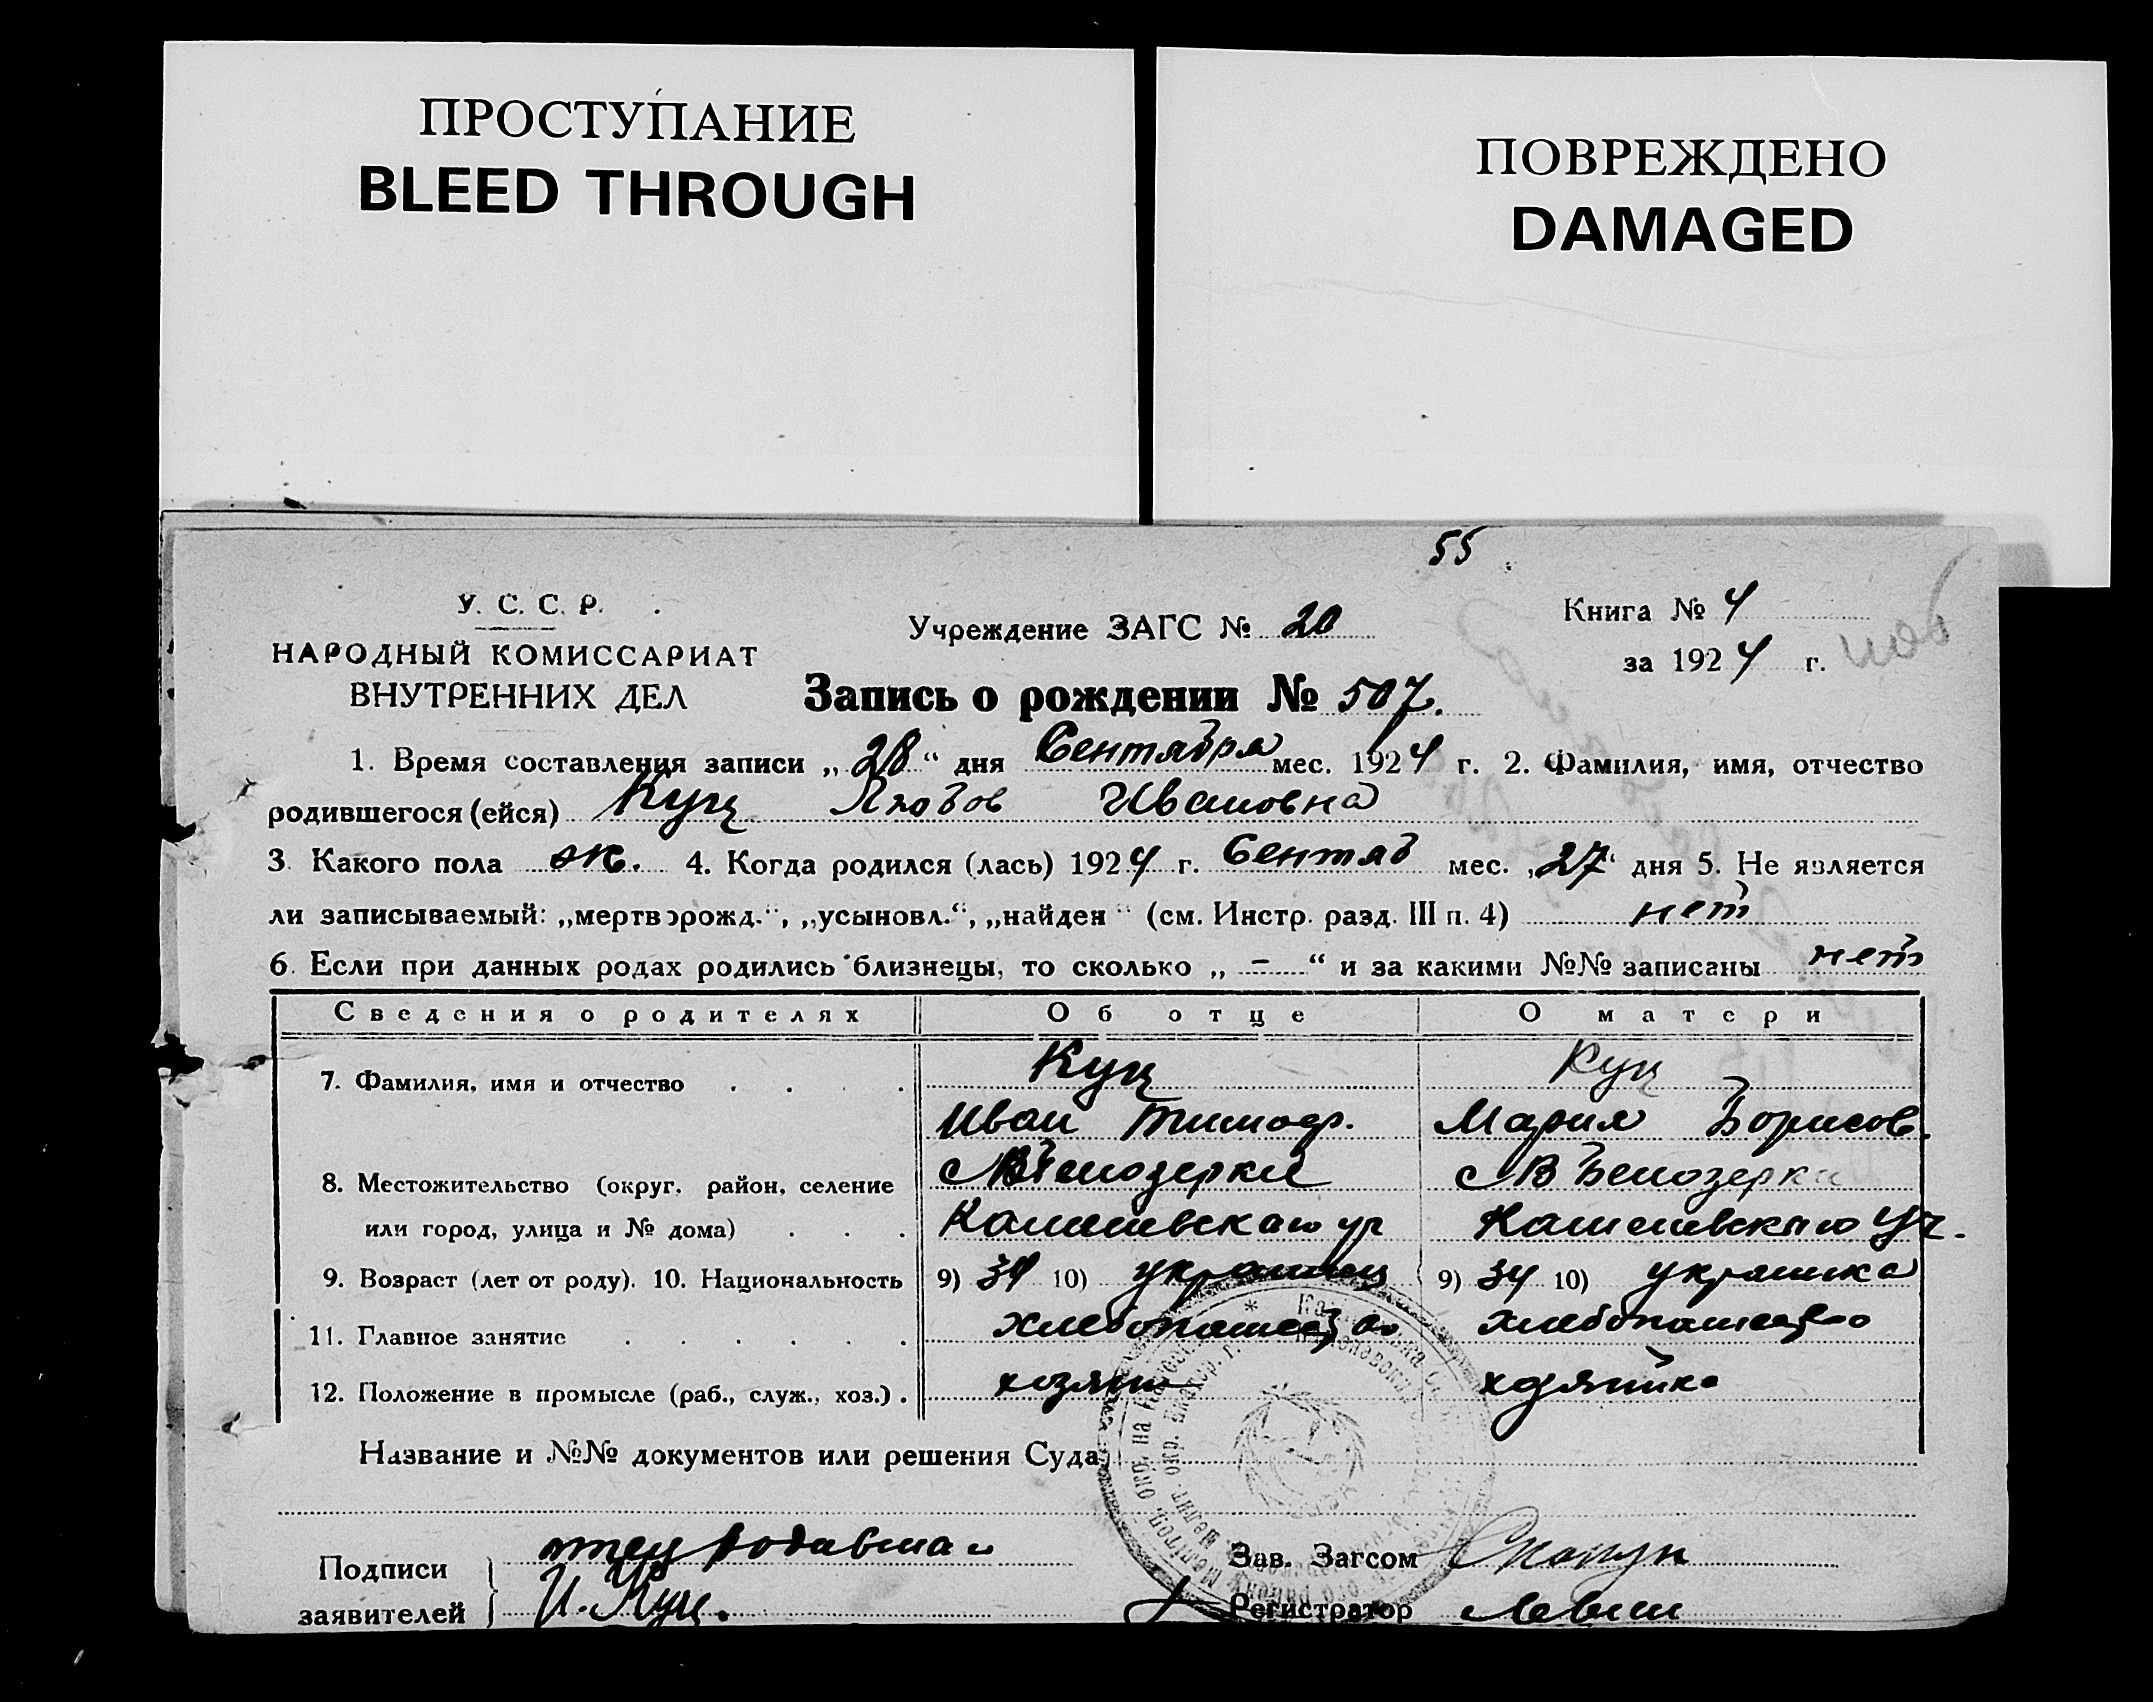 ПРОСТУПАНИЕ
BLEED THROUGH
ПОВРЕЖДЕНО
DAMAGED
55
У. С. С. Р.
НАРОДНЫЙ КОМИССАРИАТ
ВНУТРЕННИХ ДЕЛ
Учреждение ЗАГС № 20
Книга № 4
за 1924 г.
Запись о рождении № 507.
1. Время составления записи „28“ дня Сентября мес. 1924 г. 2. Фамилия, имя, отчество
родившегося (ейся) Куц Любов Ивановна
3. Какого пола ж. 4. Когда родился (лась) 1924 г. Сентяб мес. „27“ дня 5. Не является
ли записываемый: „мертворожд.“, „усыновл.“, „найден“ (см. Инстр. разд. III п. 4) нет
6. Если при данных родах родились близнецы, то сколько „ — “ и за какими №№ записаны нет
Сведения о родителях Об отце О матери
7. Фамилия, имя и отчество . . . . Куц Куц
Иван Тимоф. Мария Борисов.
8. Местожительство (округ, район, селение МБелозерки МВ Белозерки
или город, улица и № дома) . . .
9. Возраст (лет от роду). 10. Национальность 9) 34 10) украинец 9) 34 10) украинка
11. Главное занятие . . . . . . хлебопашество хлебопашество
12. Положение в промысле (раб., служ., хоз.) . хозяин хозяйка
Название и №№ документов или решения Суда
Подписи отец
заявителей И. Куц.
Зав. Загсом
Регистратор Левин